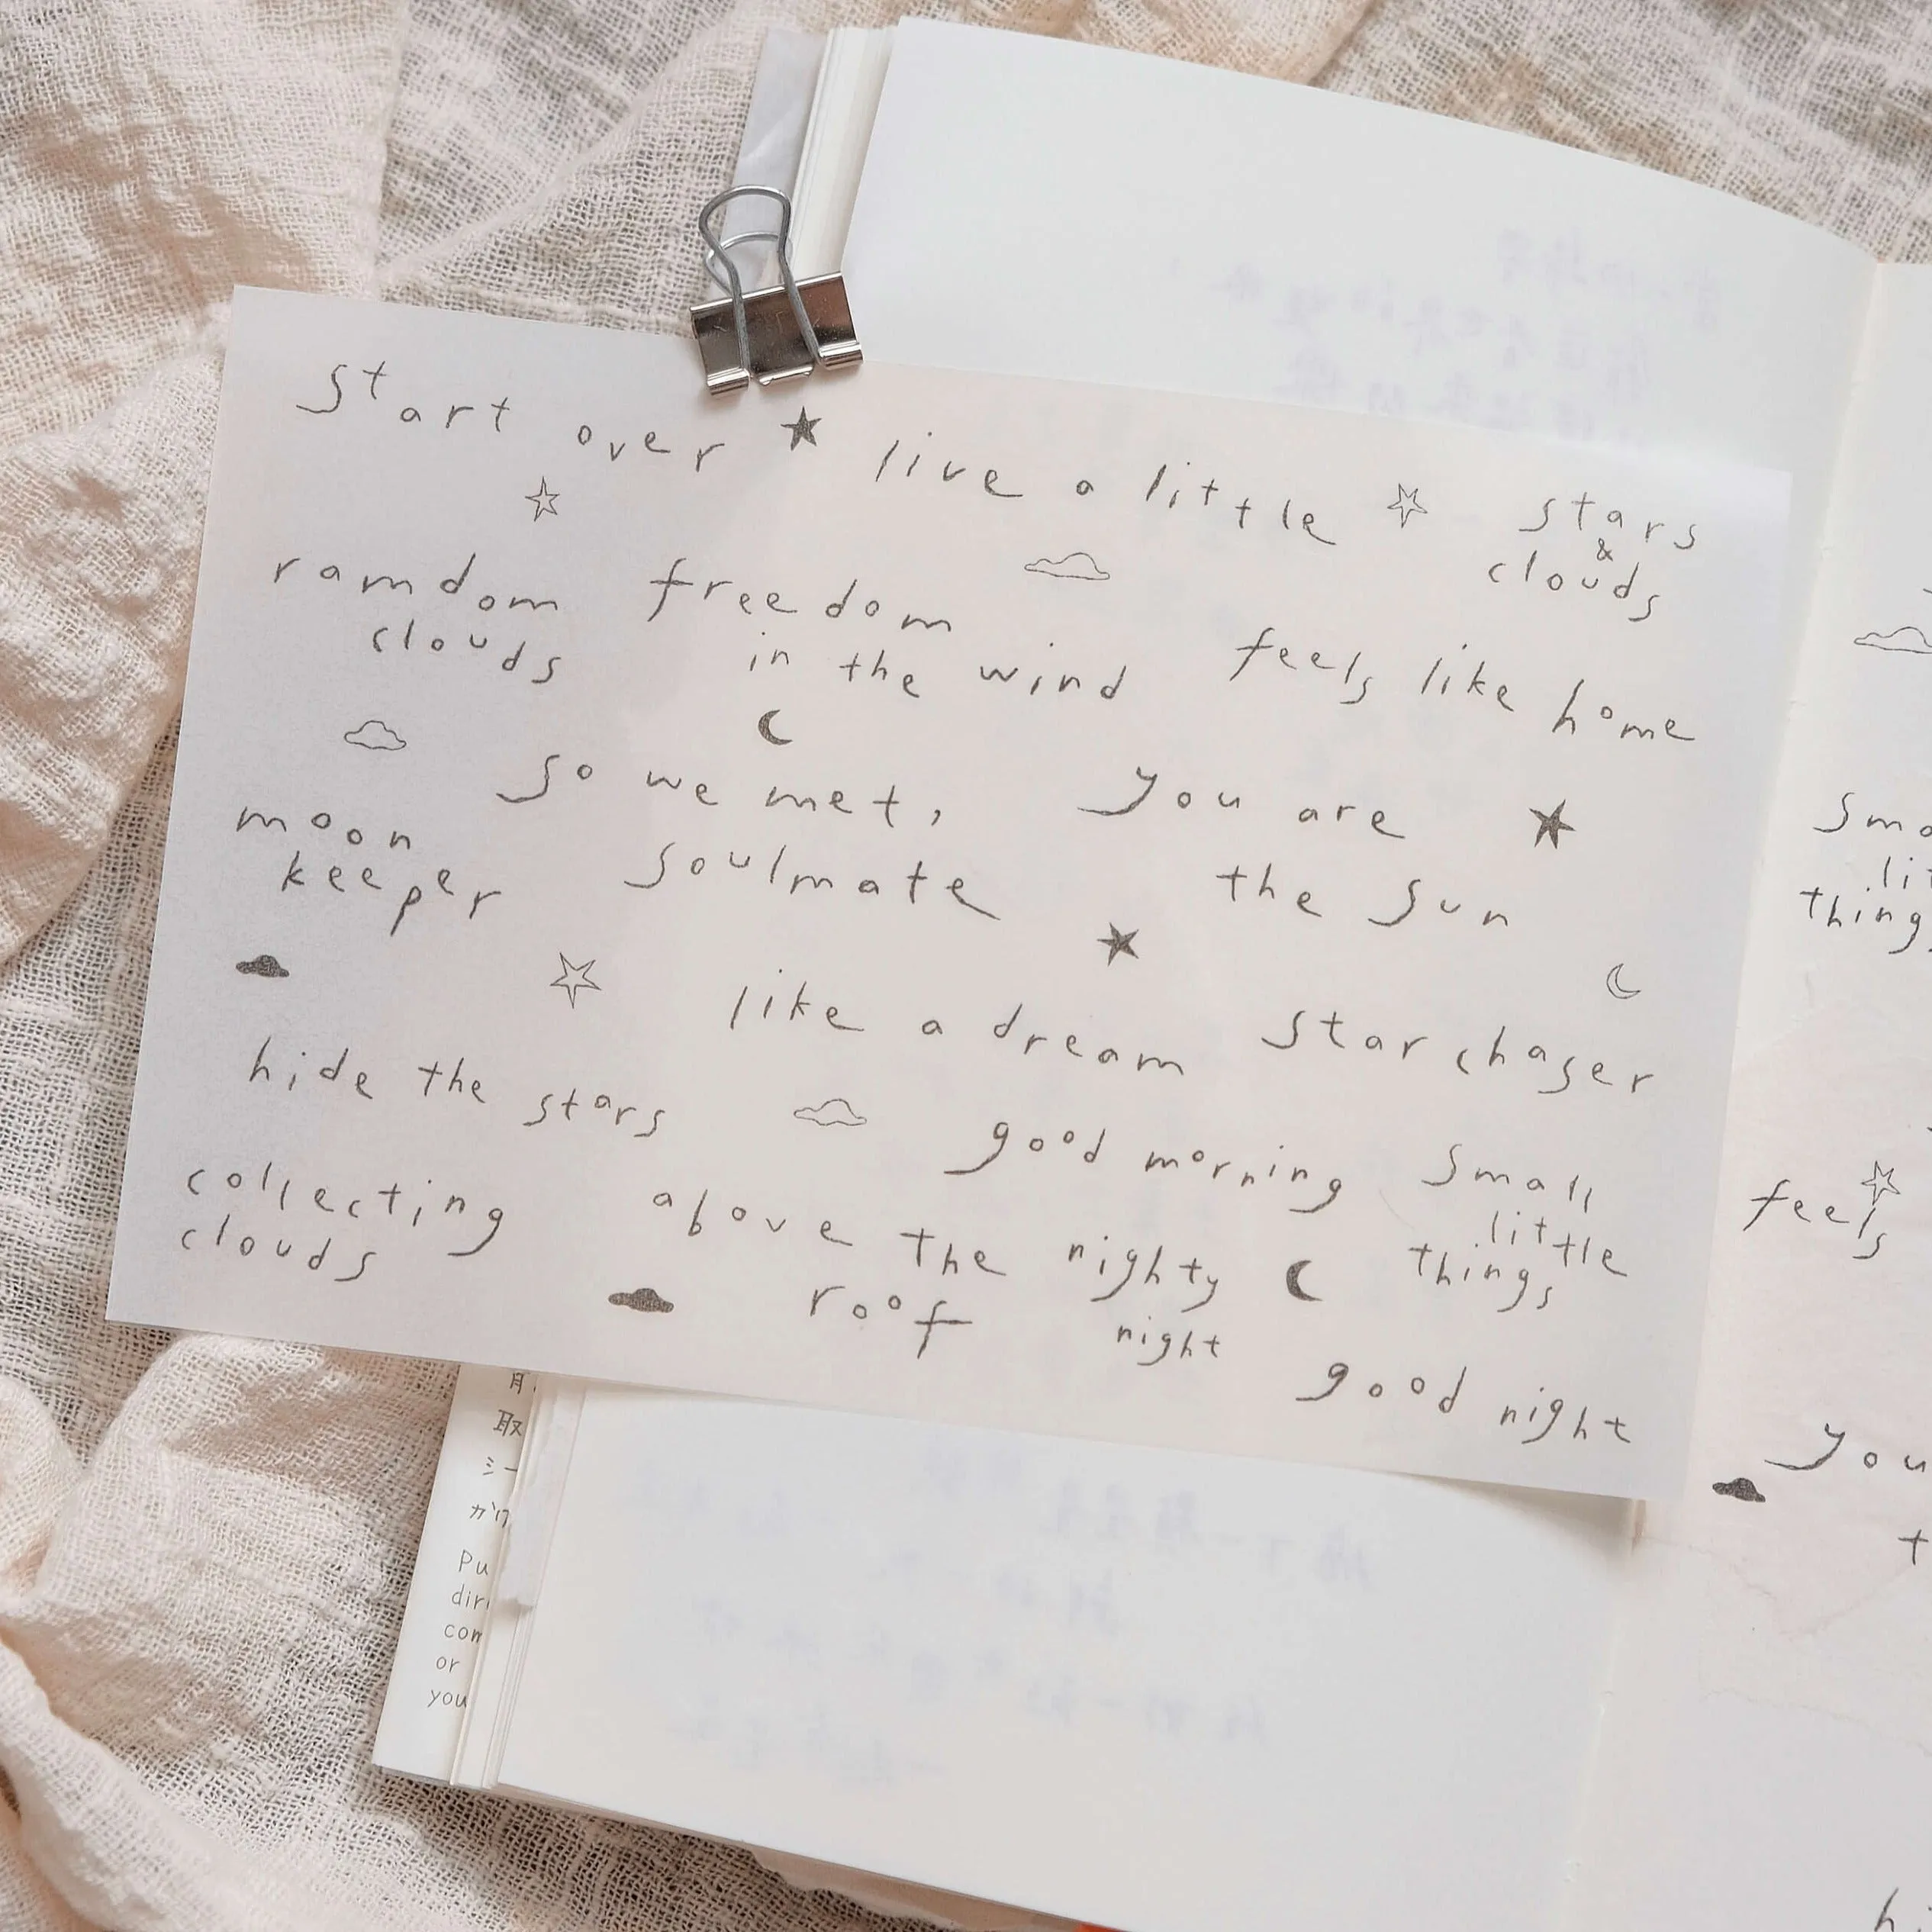 start over
live a little
stars
&
clouds
ramdom
clouds
freedom
in the wind
feels like home
so we met,
soulmate
you are
the sun
moon
keeper
like a dream
star chaser
hide the stars
good morning
small
little
things
collecting
clouds
above the
roof
nighty
night
good night
取
Pu
dir
com
or
you
things
feels
you